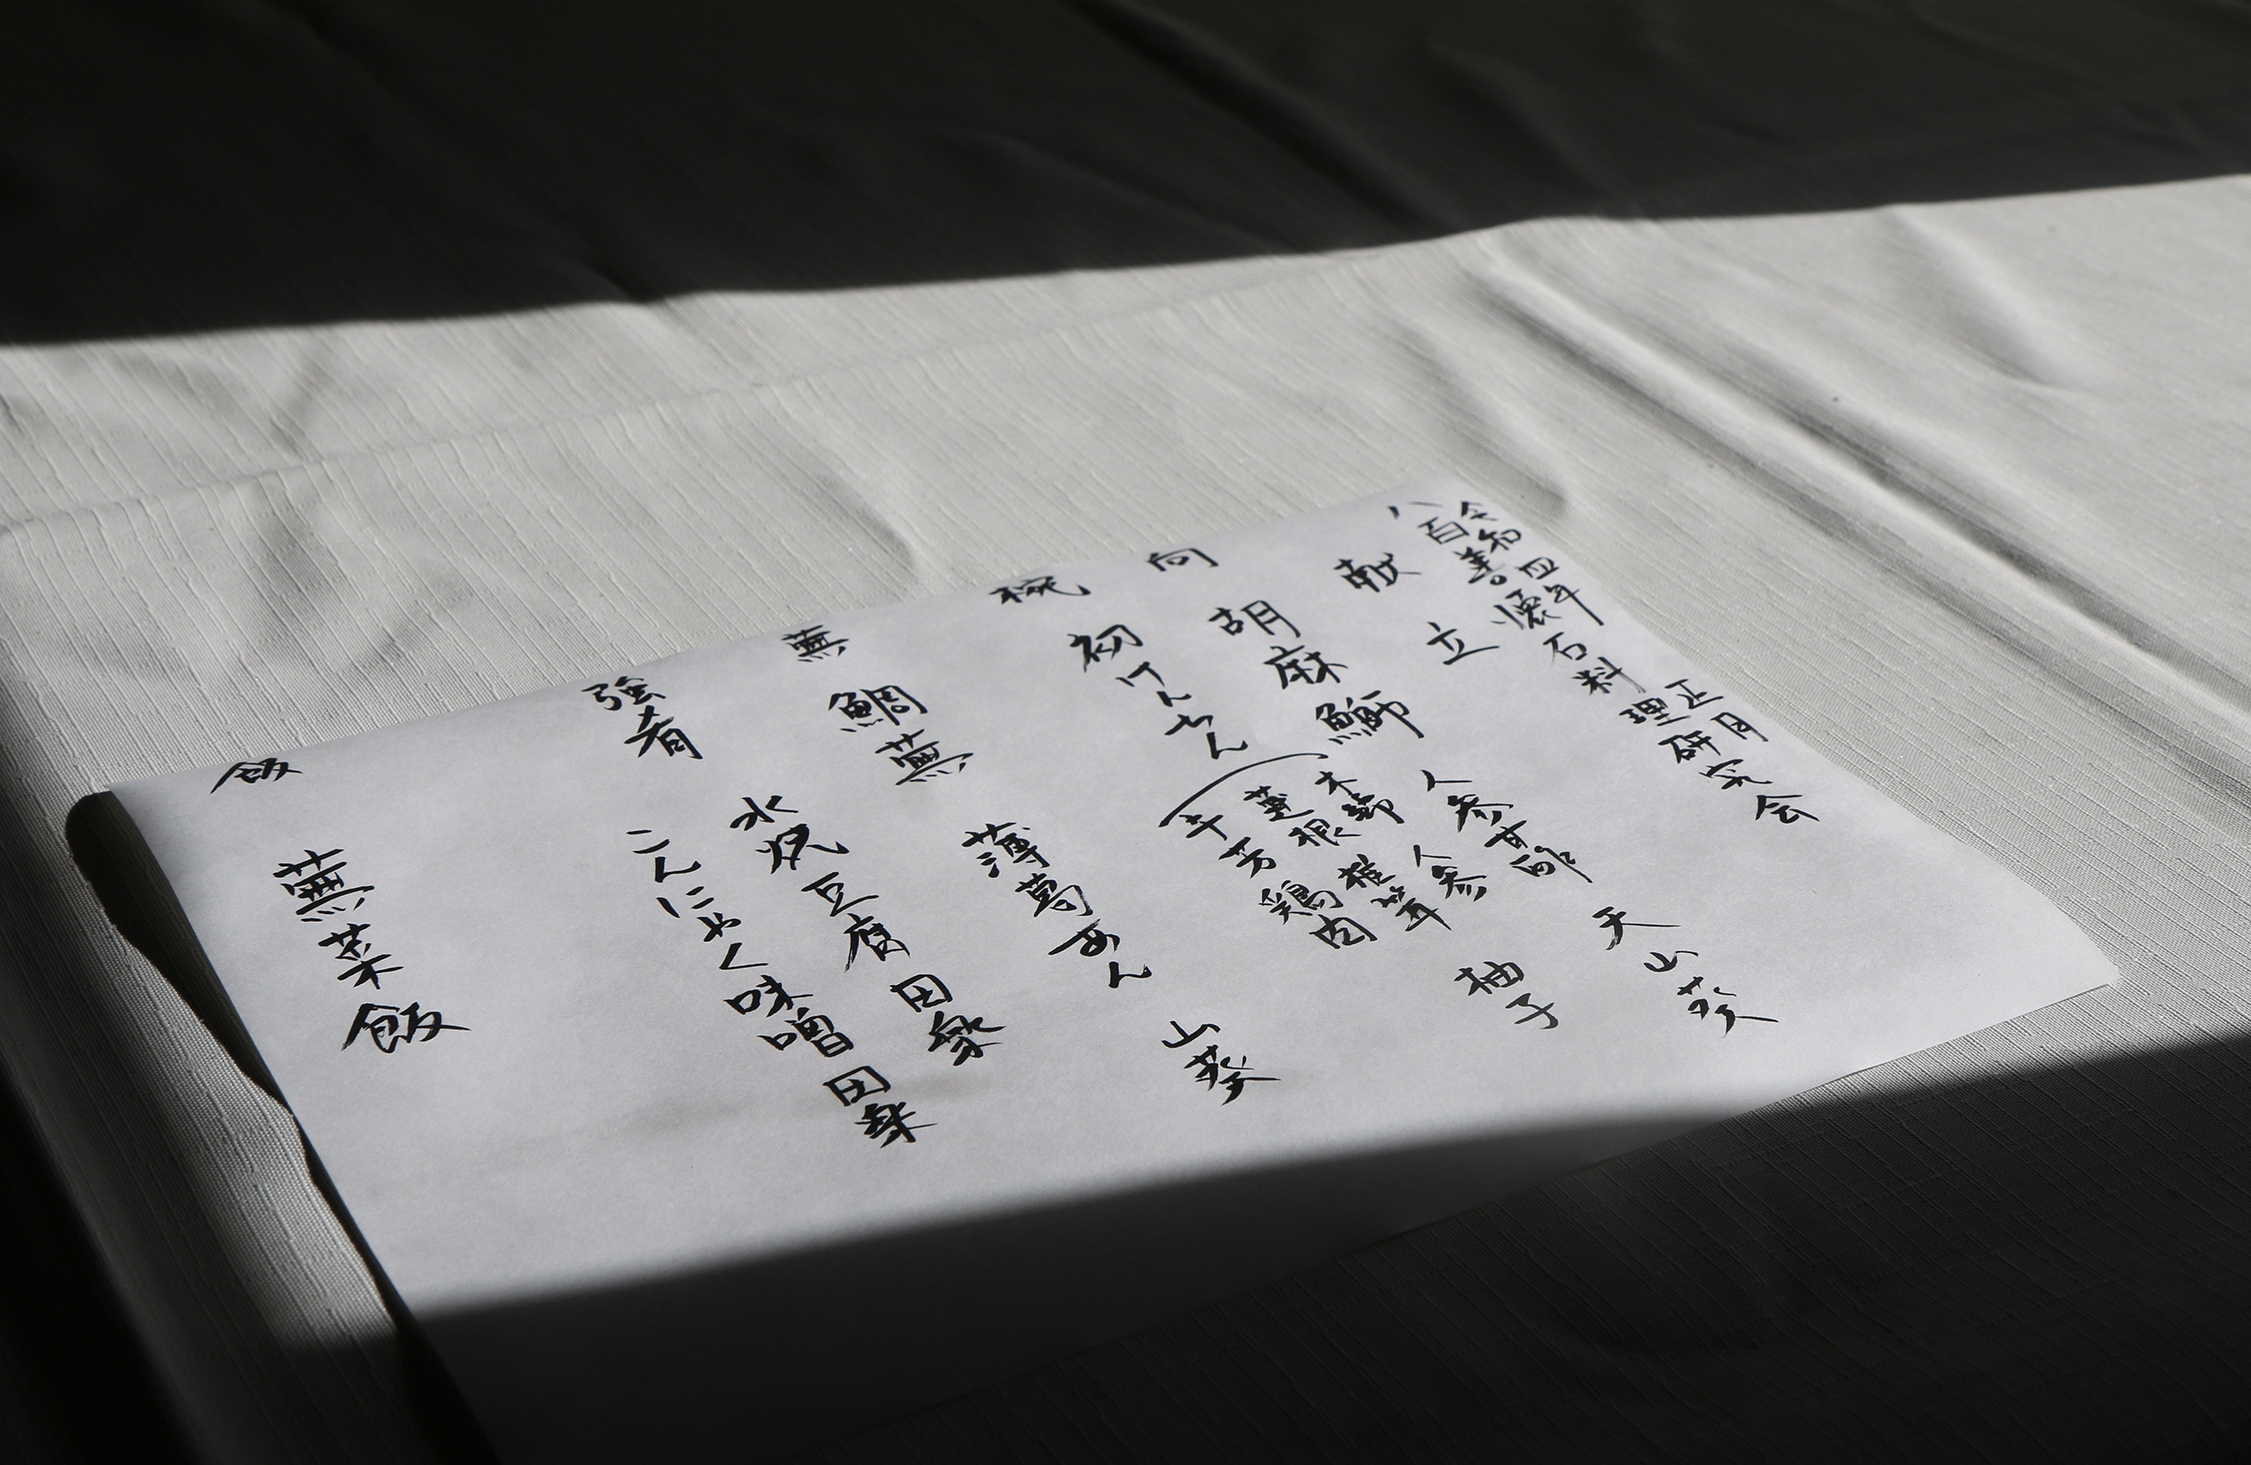 令和四年 正月
八百善 懐石料理研究会
献立
向 胡麻鰤 人参甘酢 天山葵
椀 初けんちん 柚子
人参
蓮根 椎茸
牛蒡 鶏肉
蕪 鯛蕪 薄葛あん 山葵
強肴 水焼豆腐田楽
こんにゃく味噌田楽
飯 蕪菜飯